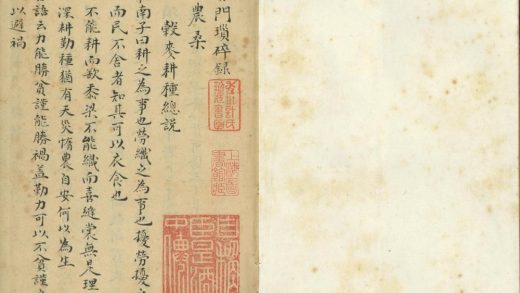 門瑣碎録
農桑
穀麥耕種總説
南子曰耕之為事也勞織之為事也擾勞擾
而民不舍者知其可以衣食也
不能耕而欲黍梁不能織而喜縫裳無是理
深耕勤種猶有天災惰農自安何以為生
語云力能勝貧謹能勝禍盖勤力可以不貧謹
以避禍
上海圖書館藏